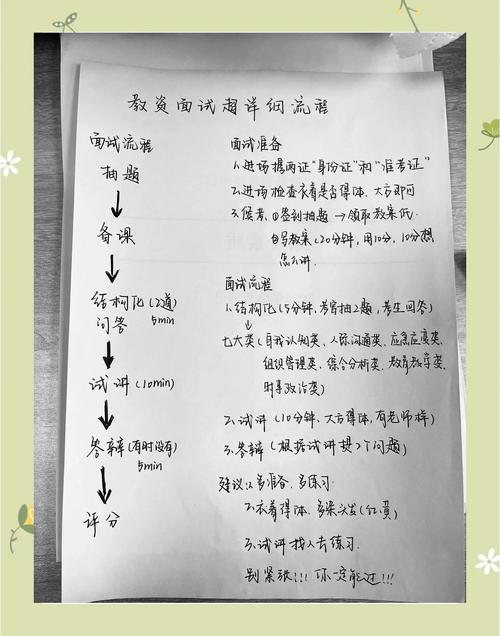 教资面试超详细流程
面试流程
抽题
备课
结构化(2道)
问答 5min
试讲(10min)
答辩(有时没有)
5min
评分
面试准备
1.进场携两证"身份证"和"准考证"
2.进场检查衣着是否得体、大方即可
3.候考、①签到抽题→领取教案纸.
②写教案(20分钟,用10分,10分想
怎么讲.
面试流程
1.结构化(5分钟、考官抽2题,考生回答)
七大类(自我认知类、人际沟通类、应急应变类、
组织管理类、综合分析类、教育教学类、
时事政治类)
2.试讲(10分钟、大方得体,有老师样)
3.答辩(根据试讲提2个问题)
建议:1.多准备、多练习.
2.衣着得体、多染头发(红、黄)
3.试讲找人去练习.
别紧张!!!你一定能过!!!